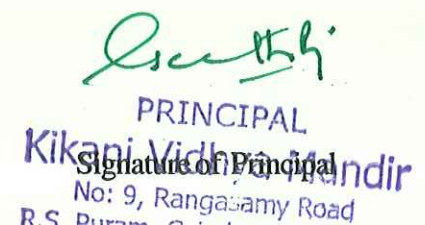 PRINCIPAL
Kikani Vidhya Mandir
Signature of Principal
No: 9, Rangasamy Road
R.S. Puram,